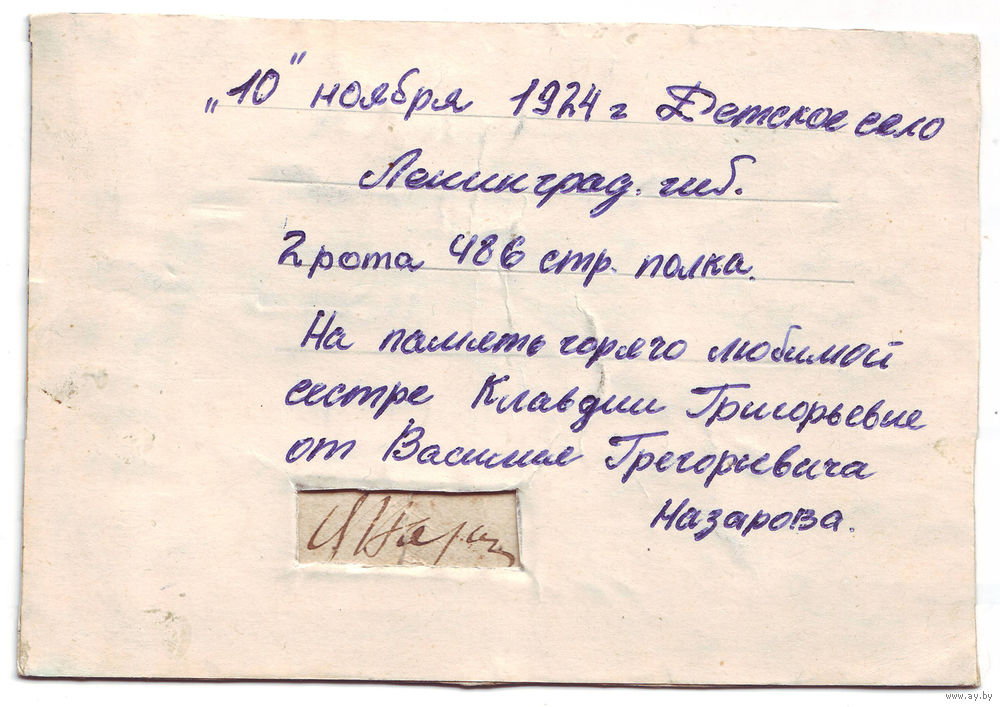 „10" ноября 1924 г Детское село
Ленинград. губ.
2 рота 486 стр. полка.
На память горячо любимой
сестре Клавдии Григорьевне
от Василия Грегорьевича
Назарова.
www.ay.by